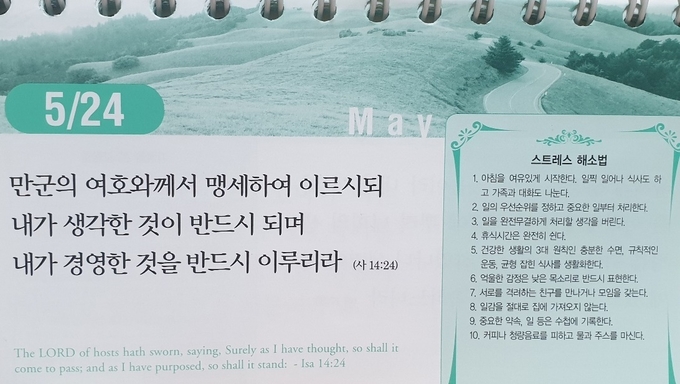 5/24
May
만군의 여호와께서 맹세하여 이르시되
내가 생각한 것이 반드시 되며
내가 경영한 것을 반드시 이루리라 (사 14:24)
The LORD of hosts hath sworn, saying, Surely as I have thought, so shall it
come to pass; and as I have purposed, so shall it stand: - Isa 14:24
스트레스 해소법
1. 아침을 여유있게 시작한다. 일찍 일어나 식사도 하
고 가족과 대화도 나눈다.
2. 일의 우선순위를 정하고 중요한 일부터 처리한다.
3. 일을 완전무결하게 처리할 생각을 버린다.
4. 휴식시간은 완전히 쉰다.
5. 건강한 생활의 3대 원칙인 충분한 수면, 규칙적인
운동, 균형 잡힌 식사를 생활화한다.
6. 억울한 감정은 낮은 목소리로 반드시 표현한다.
7. 서로를 격려하는 친구를 만나거나 모임을 갖는다.
8. 일감을 절대로 집에 가져오지 않는다.
9. 중요한 약속, 일 등은 수첩에 기록한다.
10. 커피나 청량음료를 피하고 물과 주스를 마신다.